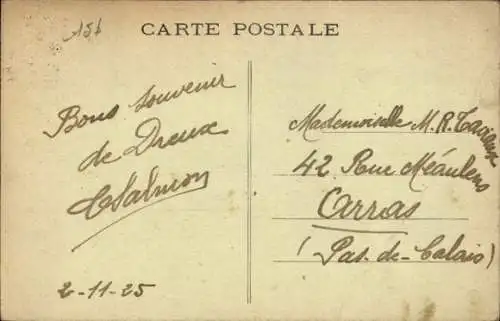 156
CARTE POSTALE
Bons souvenir
de Dreux
CSalmon
2-11-25
Mademoiselle M. R.
42 Rue Méaulens
Arras
(Pas-de-Calais)